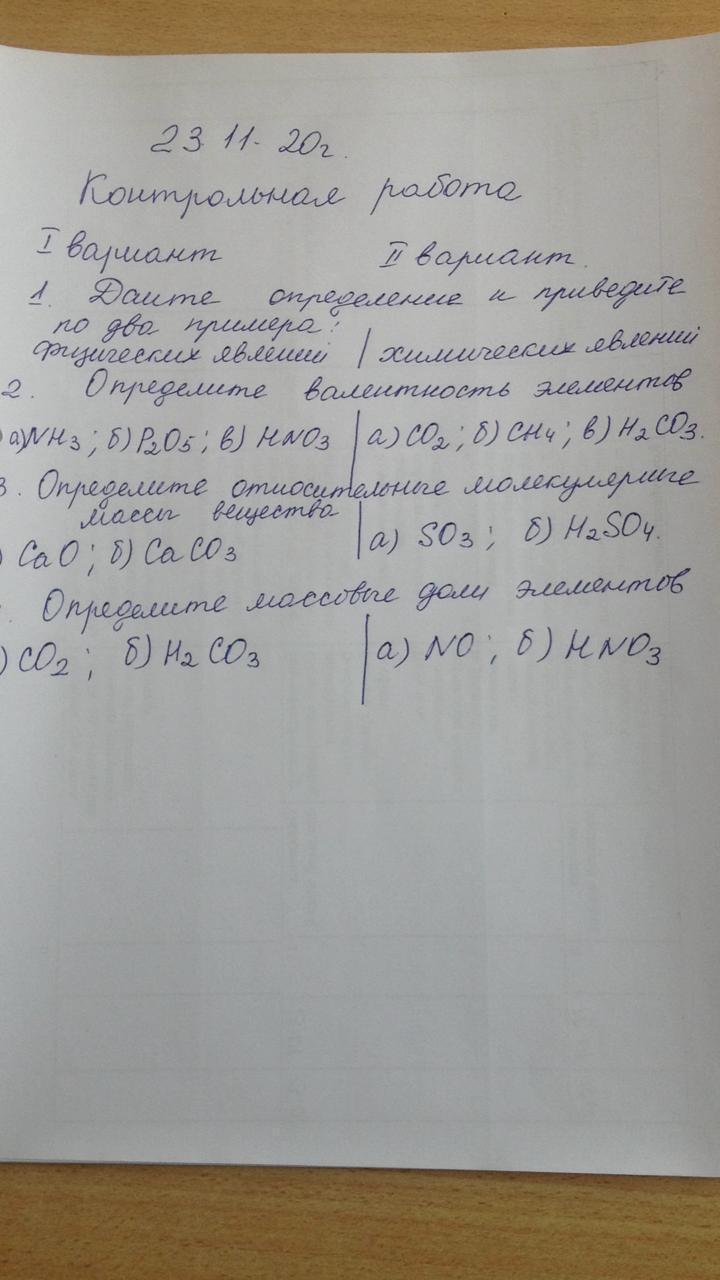 23.11.20г.
Контрольная работа
I вариант II вариант.
1. Дайте определение и приведите
по два примера:
физических явлений | химических явлений
2. Определите валентность элементов
а) NH3; б) P2O5; в) HNO3 | а) CO2; б) CH4; в) H2CO3.
3. Определите относительные молекулярные
массы вещества
) CaO; б) CaCO3 | а) SO3; б) H2SO4.
Определите массовые доли элементов
) CO2; б) H2CO3 | а) NO; б) HNO3